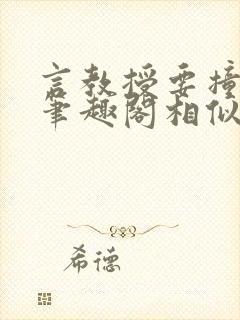 言教授要撞
笔趣阁相似
希德